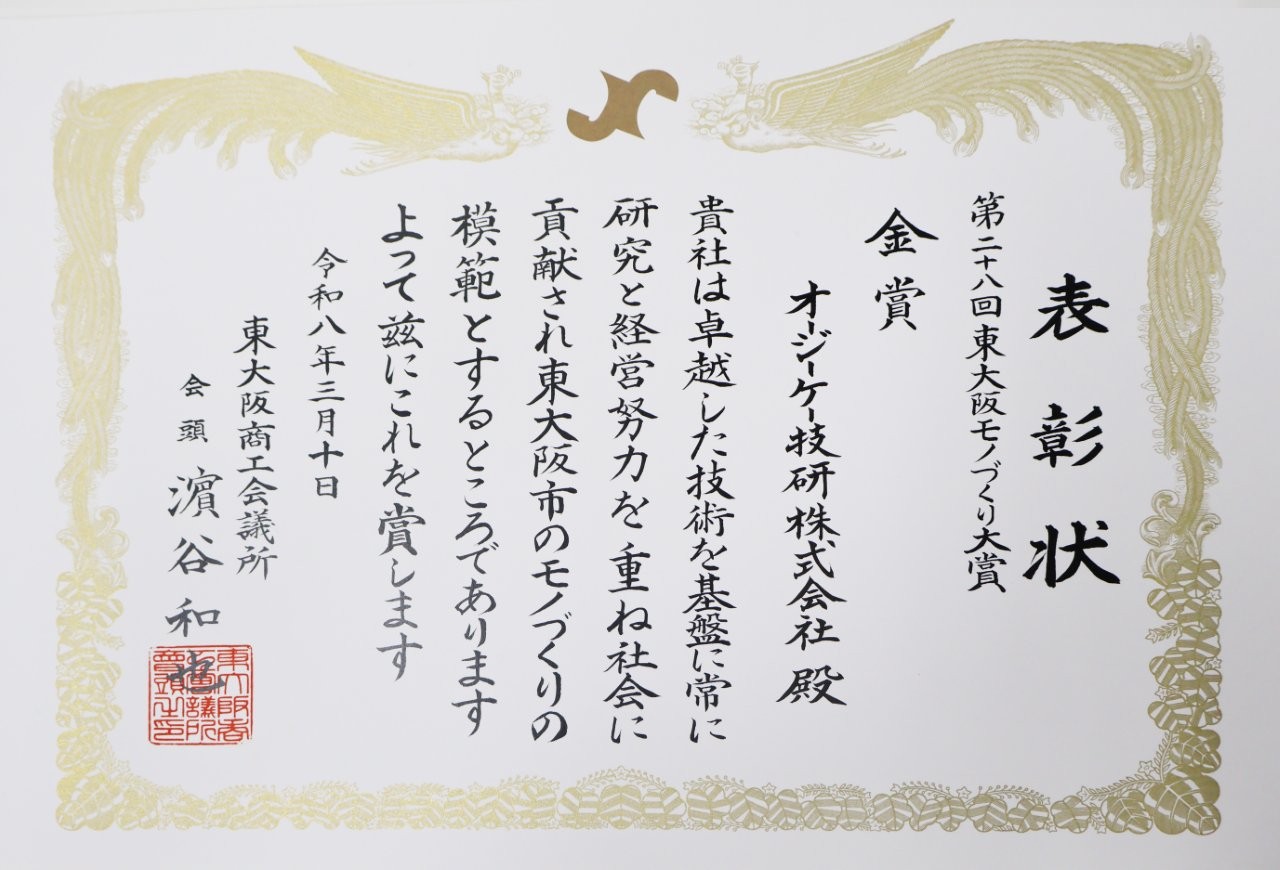 表彰状
第二十八回東大阪モノづくり大賞
金賞
オージーケー技研株式会社 殿
貴社は卓越した技術を基盤に常に
研究と経営努力を重ね社会に
貢献され東大阪市のモノづくりの
模範とするところであります
よって茲にこれを賞します
令和八年三月十日
東大阪商工会議所
会頭 濵谷和也